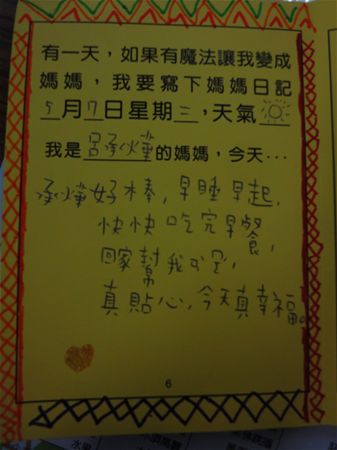 有一天，如果有魔法讓我變成
媽媽，我要寫下媽媽日記
5月7日星期三，天氣
我是呂承燁的媽媽，今天…
承燁好棒，早睡早起，
快快吃完早餐，
回家幫我
真貼心，今天真幸福。
6